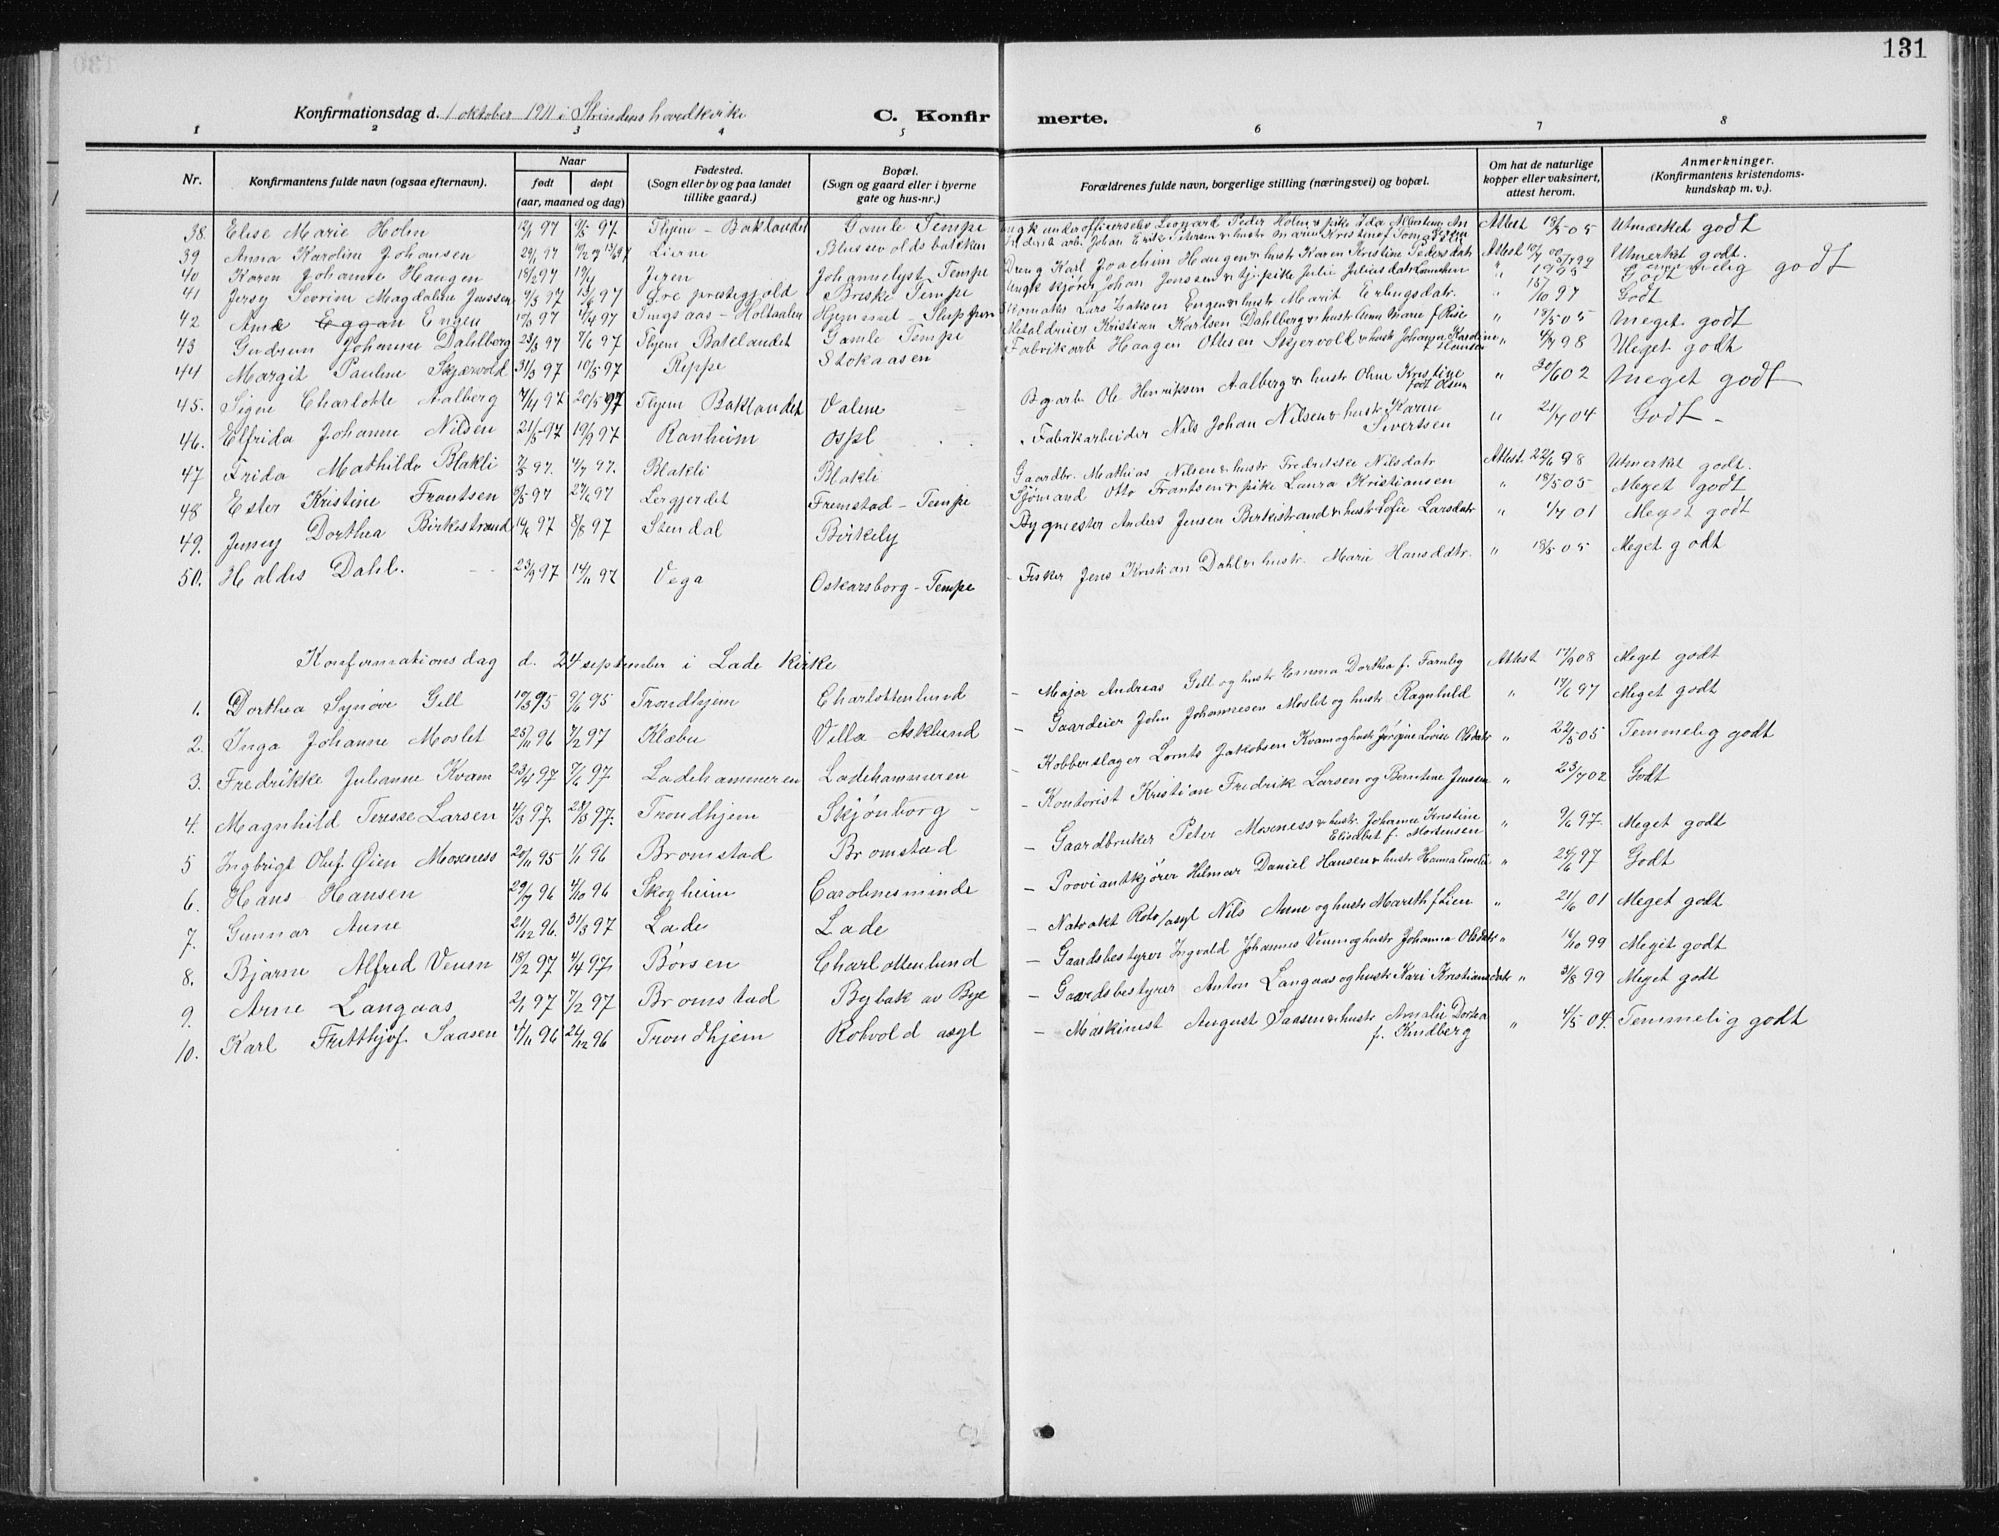 131
Konfirmationsdag d. 1 oktober 1911 i Strindens hovedkirke C. Konfirmerte.
1 2 3 4 5 6 7 8
Nr. Konfirmantens fulde navn (ogsaa efternavn). Naar født døpt (aar, maaned og dag) Fødested. (Sogn eller by og paa landet tillike gaard.) Bopæl. (Sogn og gaard eller i byerne gate og hus-nr.) Forældrenes fulde navn, borgerlige stilling (næringsvei) og bopæl. Om hat de naturlige kopper eller vaksinert, attest herom. Anmerkninger. (Konfirmantens kristendoms-kundskap m. v.).
38. Elise Marie Holm 97 97 Thjem - Baklandet Gamle Tempe Leonard Peder Holm & pike Ida Attest 18/5 05 Utmerket godt
39 Anna Karoline Johansen 29/1 97 Lierne arb. Johan Erik Petersen & hustr Attest Utmerket godt.
40 Karen Johanne Haugen 18/2 97 Jeren Johannelyst Tempe Dreng Karl Joachim Haugen & hustr Karen Kristine Pedersdatr " Temmelig godt
41 Jenny Sevrine Magdalene Jenssen 97 13/6 97 Øre prestegjeld Breske Tempe Johan Jenssen & tj. pike Julie Juliusdatr " Godt
42 Ane Eggan Engen 17/3 97 19/4 97 Singsaas - Holtaalen Hjemmet - Sluppen Lars Larsen Engen & hustr Marit Erlingsdatr. " 15/10 97 Godt
43 Gudrun Johanne Dahlberg 25/3 97 7/6 97 Thjem Baklandet Gamle Tempe Kristian Karlsen Dahlberg & hustr Anna Marie f Risé " 18/5 05 Meget godt
44 Margit Pauline Skjærvold 31/3 97 10/5 97 Reppe Stokaasen Fabrikarb Haagen Ottesen Skjervold & hustr Johanna Karoline " 4/7 98 Meget godt
45. Signe Charlotte Aalberg 7/4 97 20/5 97 Thjem Baklandet Valene Bg arb Ole Henriksen Aalberg & hustr Oline Kristine født Olsen " 30/6 02 Meget godt
46. Elfrida Johanne Nilsen 21/5 97 19/9 97 Ranheim Ospl Fabrikarbeider Nils Johan Nilsen & hustr Karen Sivertsen " 21/7 04 Godt -
47 Frida Mathilde Blakli 97. 4/7 97. Blakli Blakli Gaardbr. Mathias Nilsen & hustr Fredrikke Nilsdatr Attest 22/6 98 Utmerket godt.
48 Ester Kristine Frantsen 8/5 97 27/6 97 Lergjerdet Fremstad - Tempe Sjömand Otto Frantsen & pike Laura Kristiansen " 18/5 05 Meget godt
49. Jenny Dorthea Birkestrand 97 8/8 97 Stendal Birkely Bygmester Anders Jensen Berkistrand & hustr Sofie Larsdatr " 4/7 01 Meget godt
50. Haldis Dahl. 23/9 97 14/11 97 Vega Oskarsborg - Tempe - Fisker Jens Kristian Dahl & hustr. Marie Hansdatr. " 18/5 05 Meget godt
Konfirmationsdag d. 24 september i Lade Kirke
1. Dorthea Synøve Gill 19/3 95 9/6 95 Trondhjem Charlottenlund - Major Andreas Gill og hustr Emma Dorthea f. Farnlig Attest 17/9 08 Meget godt
2. Inga Johanne Moslet 25/11 96 7/2 97 Klæbu Villa Asklund - Gaardeier John Johannesen Moslet og hustr Ragnhild " 14/6 97 Meget godt
3. Fredrikke Julianne Kvam 23/4 97 7/6 97 Ladehammeren Ladehammeren - Kobberslager Lornts Jakobsen Kvam og hustr Jørgine Lovise Olsdatr " 22/5 05 Temmelig godt
4. Magnhild Teresse Larsen 4/3 97. 28/3 97. Trondhjem Skjönborg - - Kontorist Kristian Fredrik Larsen og Berntine Jensen " 23/7 02 Godt
5 Ingbrigt Oluf Øien Moseness 20/11 95 1/1 96 Bromstad Bromstad - Gaardbruker Peter Moseness & hustr. Johanne Kristine Elisabet f. Mortensen " 9/6 97. Meget godt
6. Hans Hansen 29/7 96 4/10 96 Skogheim Carolinesminde - Proviantkjører Hilmar Daniel Hansen & hustr Hanna Emelie " 24/6 97 Godt
7. Gunnar Aune 21/12 96. 31/3 97 Lade Lade - Natvakt Rotv/asyl Nils Aune og hustr Mareth f Lien " 21/6 01 Meget godt
8. Bjarne Alfred Venm 18/2 97 4/4 97. Børsen Charlottenlund - Gaardsbestyrer Ingvald Johannes Venm og hustr Johanna Olsdatr " 14/10 99 Meget godt
9. Arne Langaas 2/1 97 7/2 97 Bromstad Bybak av Bye - Gaardsbestyrer Anton Langaas og hustr Kari Kristiansdatr " 31/8 99 Meget godt
10. Karl Fritthjof Saasen 4/11 96 26/12 96 Trondhjem Rotvold asyl - Maskinist August Saasen & hustr Amalie Dortea f. Kindberg " 4/5 04. Temmelig godt